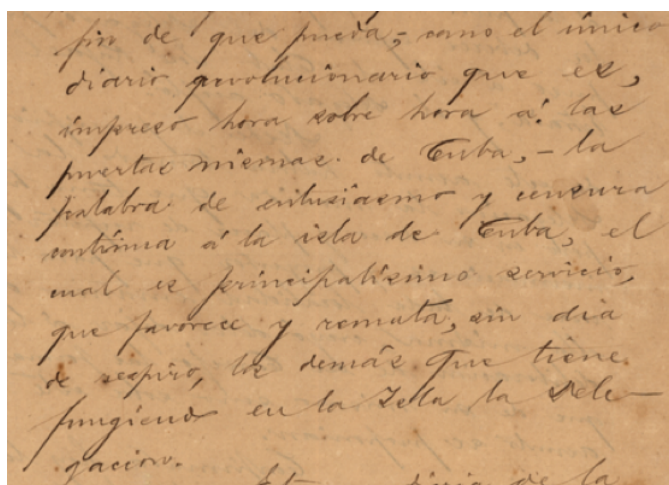 fin de que pueda, - como el único
diario revolucionario que es,
impreso hora sobre hora á las
puertas mismas de Cuba, - la
palabra de entusiasmo y censura
continua á la isla de Cuba, el
cual es principalísimo servicio,
que favorece y remata, sin dia
de respiro, los demás que tiene
fungiendo en la Isla la Dele-
gacion.
diario de la